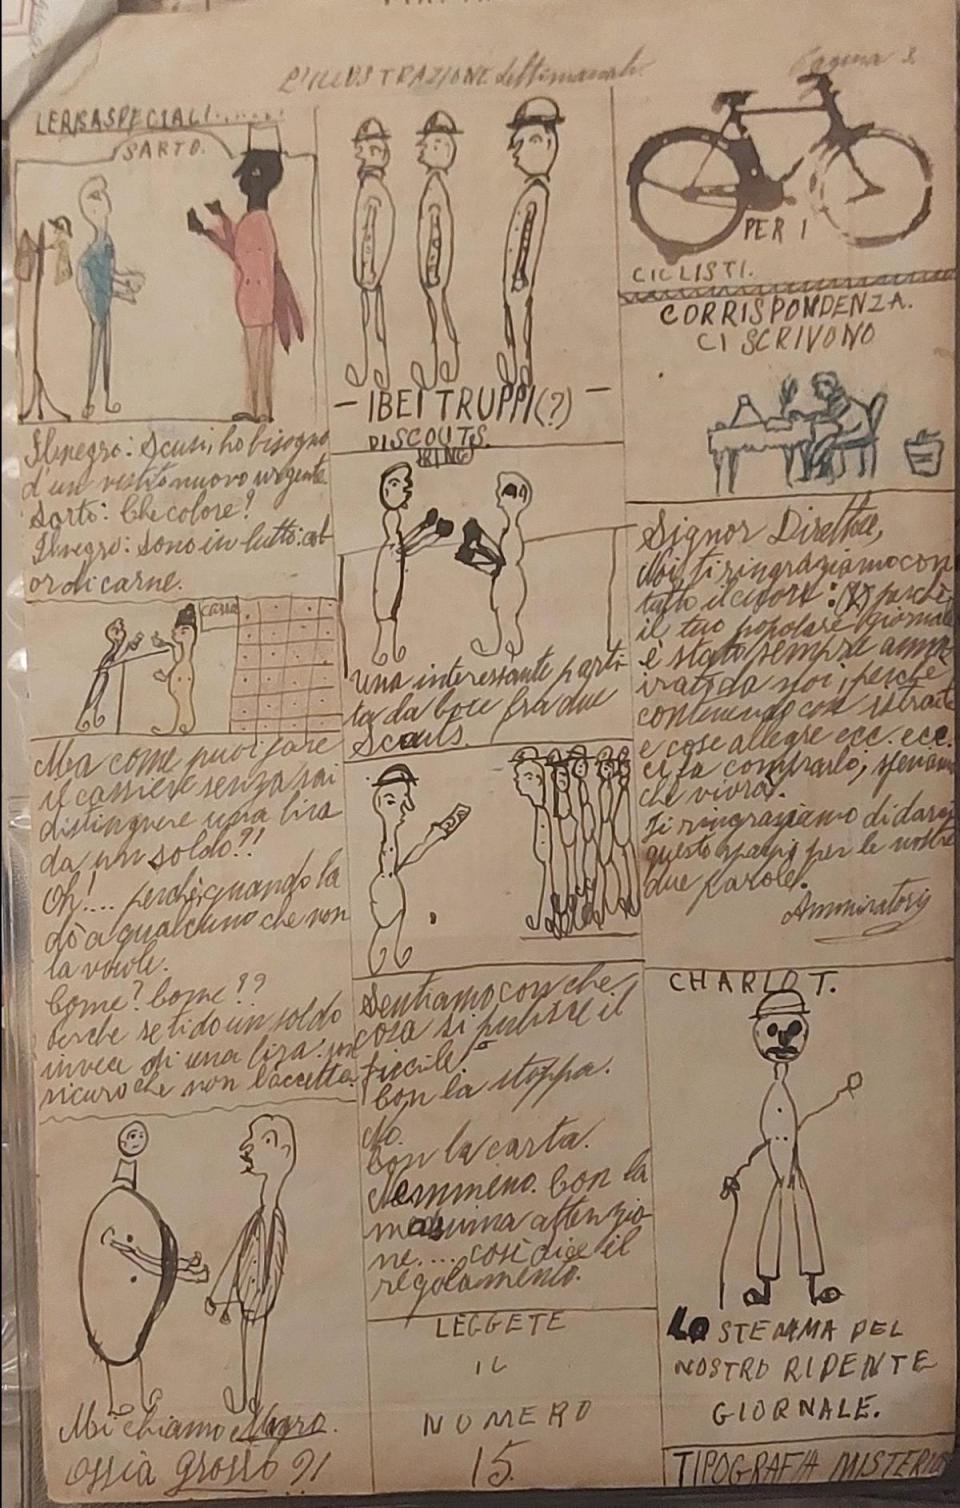 L'ILLUSTRAZIONE settimanale.
Pagina 3.
SARTO.
Il negro: Scusi, ho bisogno
d'un vestito nuovo urgente
Sarto: Che colore?
Il negro: Sono in lutto: col
or di carne.
CASSA
Ma come puoi fare
il cassiere senza sai
distinguere una lira
da un soldo?!
Oh!.... perchè quando la
dò a qualcuno che non
la vuole.
Come? Come??
Perchè se ti do un soldo
invece di una lira son
sicuro che non l'accetta.
Mi chiamo Magro.
Ossia grosso?!
- I BEI TRUPPI (?) -
DI SCOUTS.
RING
Una interessante parti-
ta da boce fra due
Scouts.
Sentiamo con che
cosa si pulisce il
fucile?
Con la stoppa.
No.
Con la carta.
Nemmeno. Con la
massima attenzio-
ne.... così dice il
regolamento.
LEGGETE
IL
NUMERO
15.
PER I
CICLISTI.
CORRISPONDENZA.
CI SCRIVONO
Signor Direttore,
Noi ti ringraziamo con
tutto il cuore: perchè
il tuo popolare giornale
è stato sempre ammi-
rato da noi, perchè
contenendo con
e cose allegre ecc. ecc.
ci fa comprarlo, speriamo
che vivrà.
Ti ringraziamo di darci
questo spazio per le nostre
due parole.
Ammiratori
CHARLOT.
LO STEMMA DEL
NOSTRO RIDENTE
GIORNALE.
TIPOGRAFIA MISTERIO